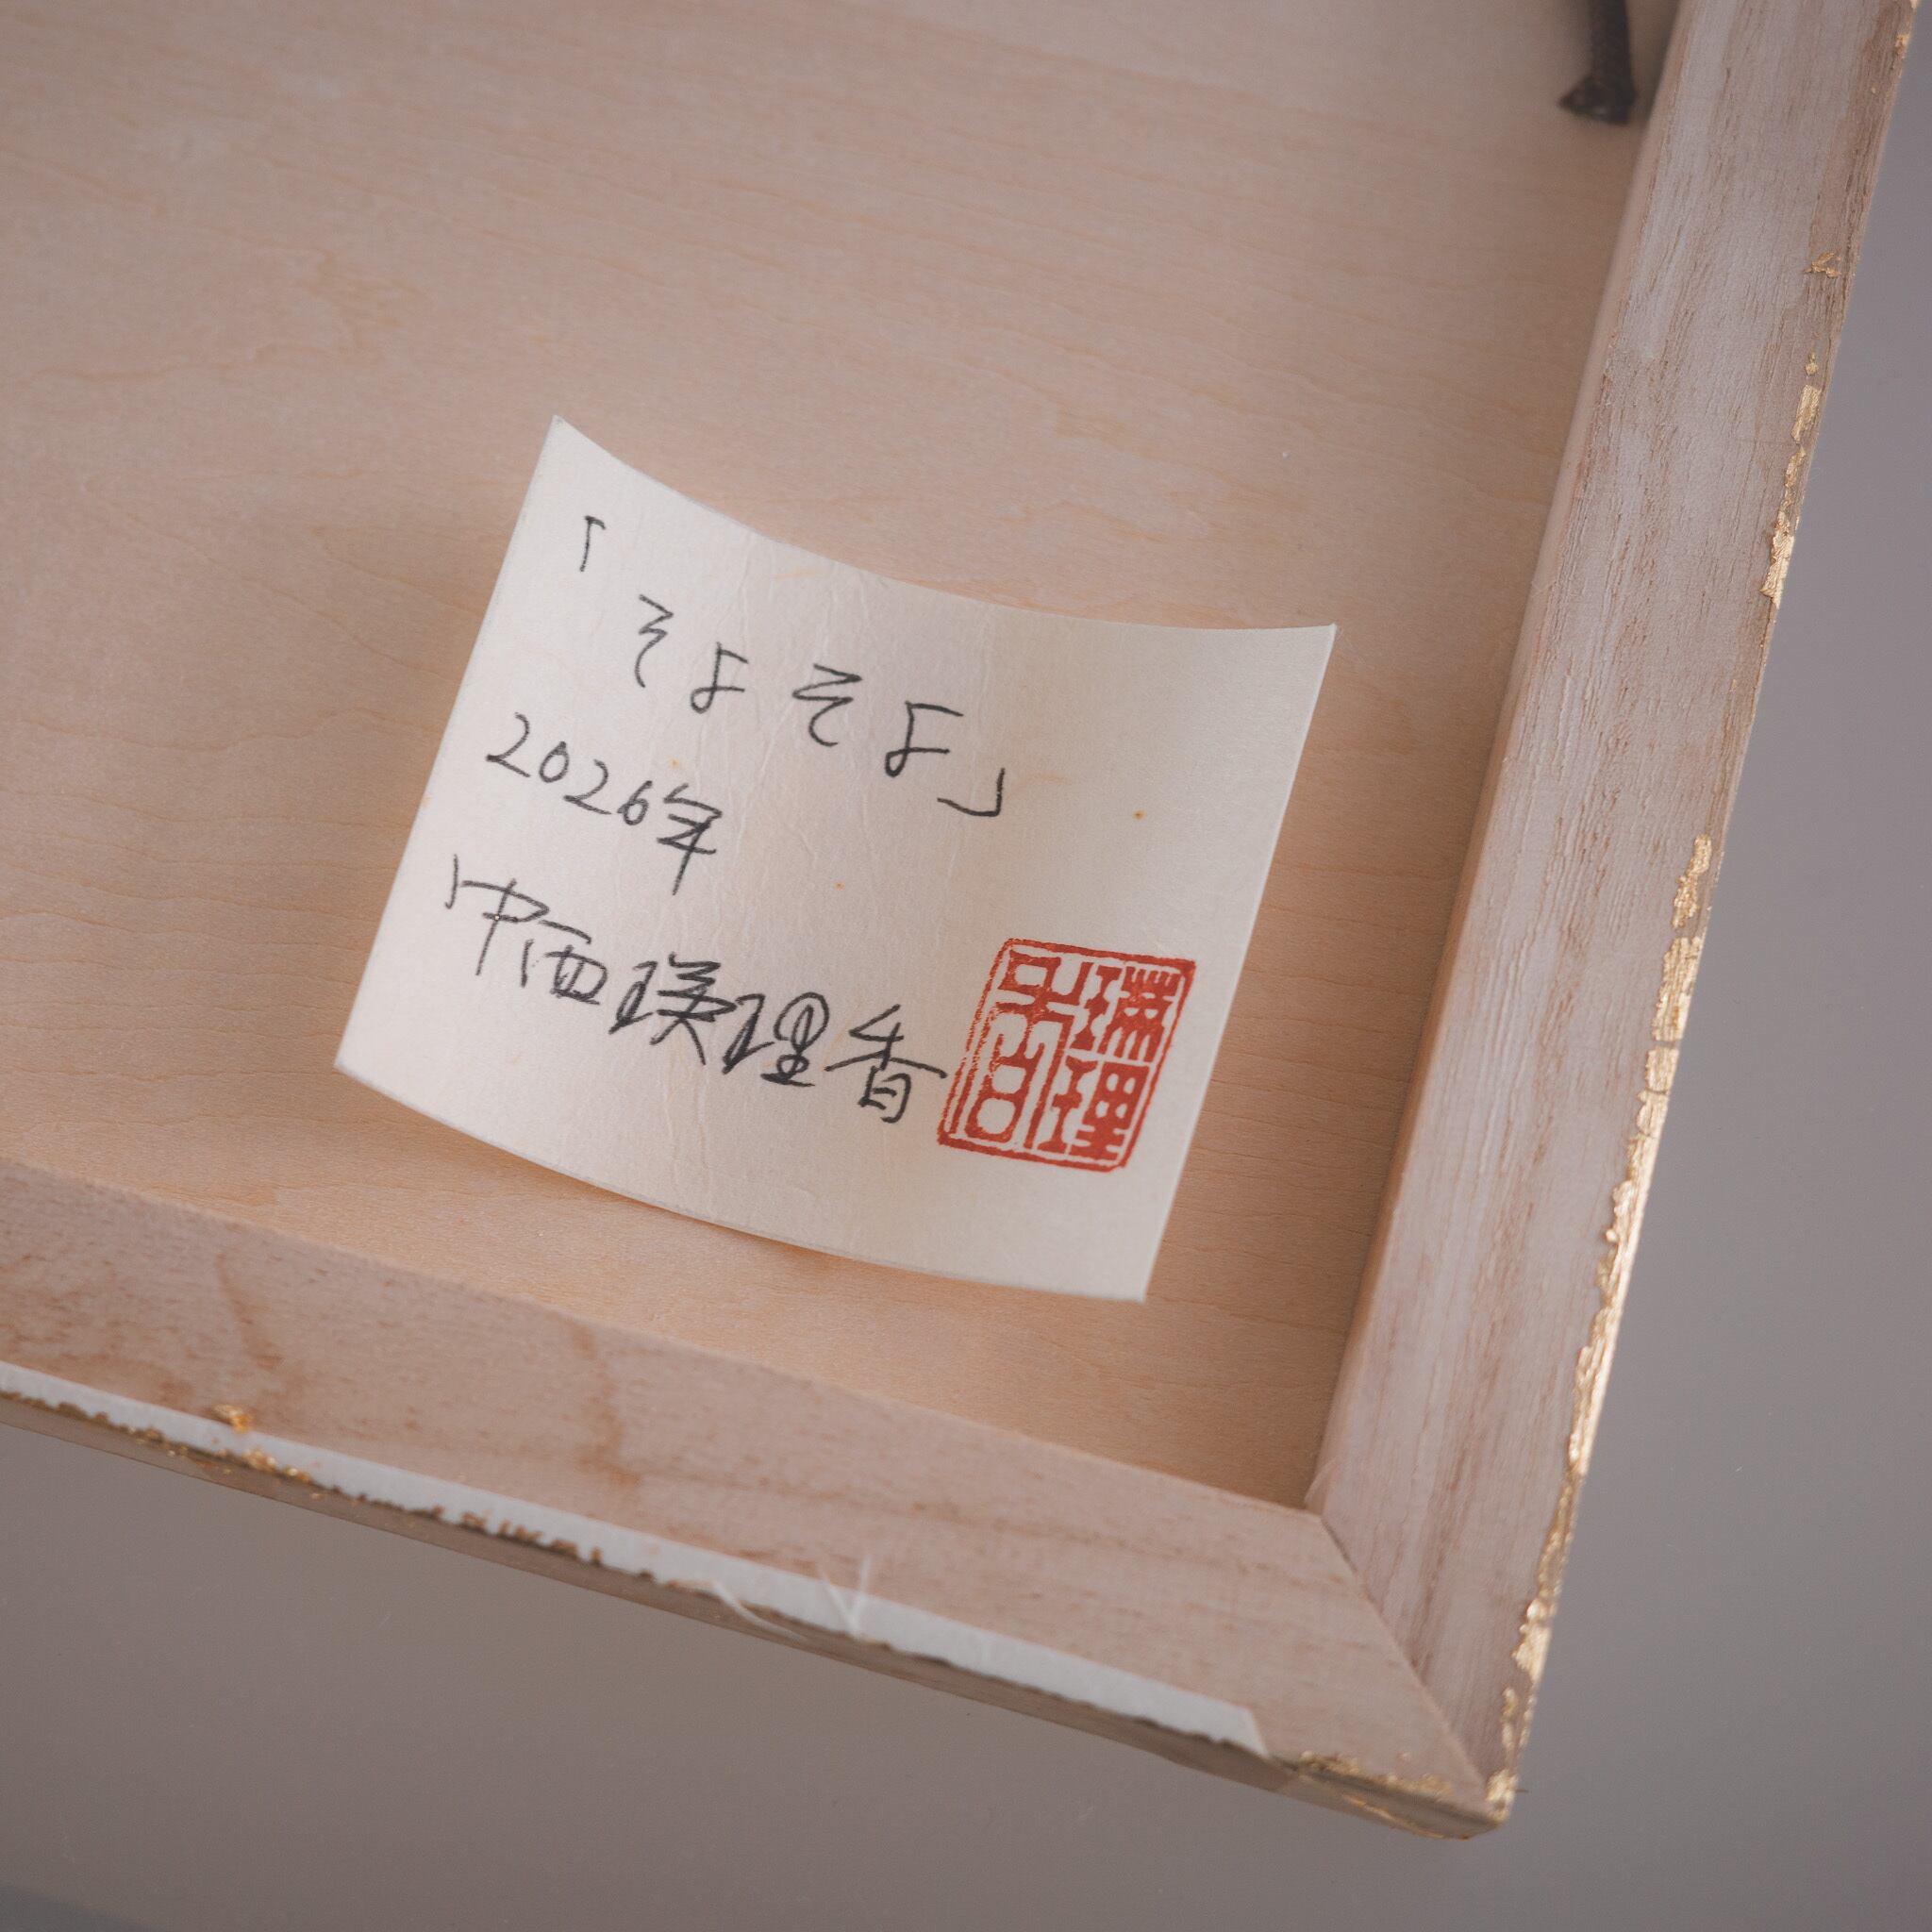 「そよそよ」
2026年
中西瑛理香
瑛理香